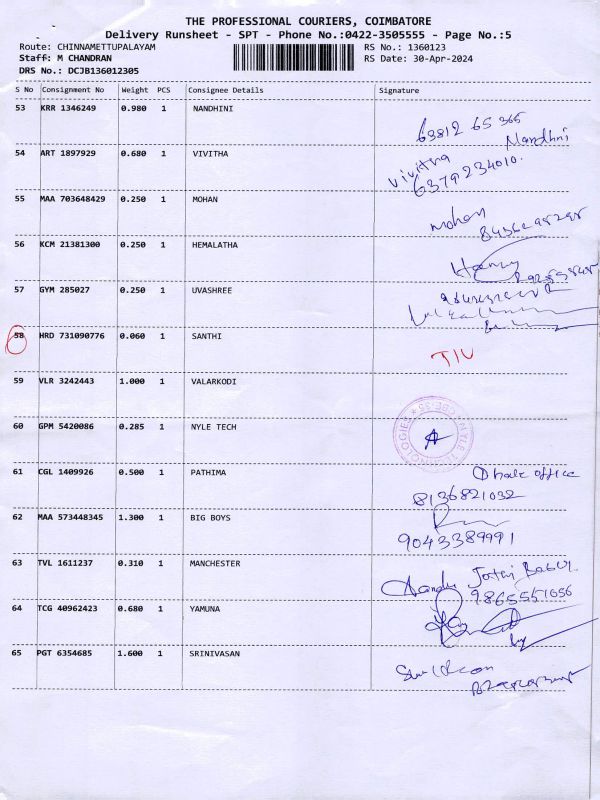 THE PROFESSIONAL COURIERS, COIMBATORE
Delivery Runsheet - SPT - Phone No.:0422-3505555 - Page No.:5
Route: CHINNAMETTUPALAYAM RS No.: 1360123
Staff: M CHANDRAN RS Date: 30-Apr-2024
DRS No.: DCJB136012305
S No Consignment No Weight PCS Consignee Details Signature
53 KRR 1346249 0.980 1 NANDHINI
63812 65 365
Nandhni
54 ART 1897929 0.680 1 VIVITHA
Vivitha
6379234010.
55 MAA 703648429 0.250 1 MOHAN
mohan
56 KCM 21381300 0.250 1 HEMALATHA
57 GYM 285027 0.250 1 UVASHREE
58 HRD 731090776 0.060 1 SANTHI
TIV
59 VLR 3242443 1.000 1 VALARKODI
60 GPM 5420086 0.285 1 NYLE TECH
61 CGL 1409926 0.500 1 PATHIMA
office
8136821032
62 MAA 573448345 1.300 1 BIG BOYS
9043389991
63 TVL 1611237 0.310 1 MANCHESTER
9865551656
64 TCG 40962423 0.680 1 YAMUNA
65 PGT 6354685 1.600 1 SRINIVASAN